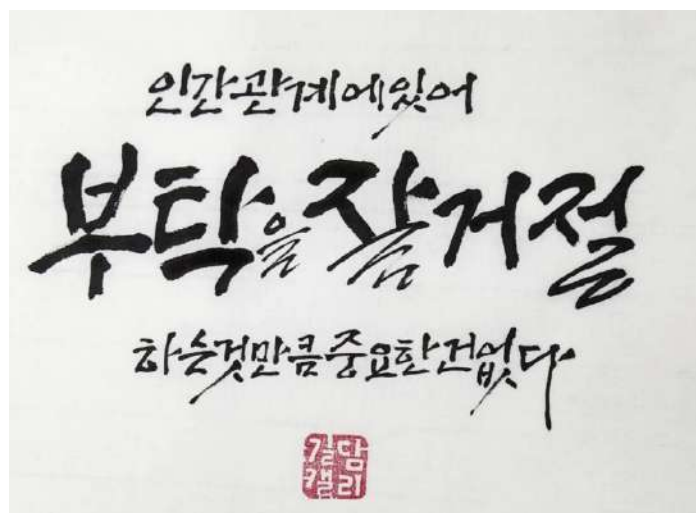 인간관계에있어
부탁을 잘 거절
하는것만큼중요한건없다
길담
캘리